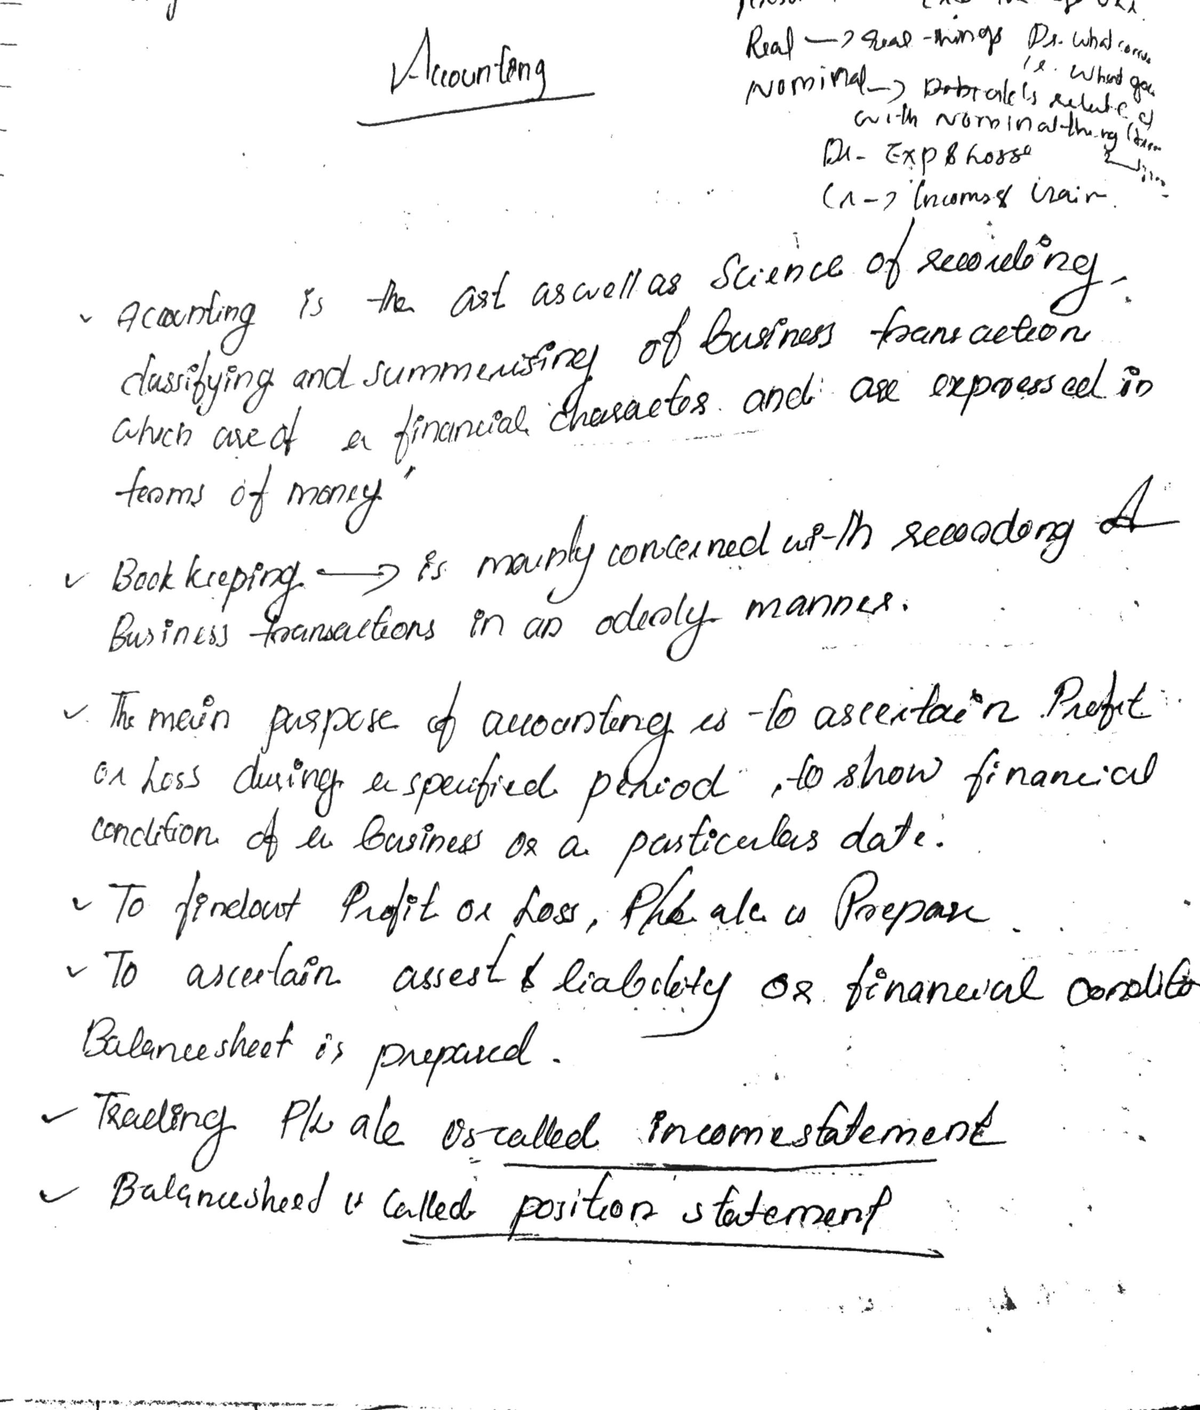 Real → real things Dr. What comes
Cr. What goes
Nominal →
with Nominal thing
Dr - Exp & Losse
Cr → Incomes & Gain.
Accounting
✓ Acounting is the art aswell as Science of recording,
classifying and summerising of business transaction
which are of a financial character and are expressed in
terms of money"
✓ Book keeping → is mainly concerned with recording of
Business transactions in an oderly manner.
✓ The main purpose of accounting is to ascertain Profit
or Loss during a specified period, to show financial
condition of a business or a particular date.
✓ To findout Profit or Loss, P/L a/c is Prepare.
✓ To ascertain assest & liability or financial conditio
Balancesheet is prepared.
✓ Trading P/L a/c is called incomestatement
✓ Balancesheed is Called position statement